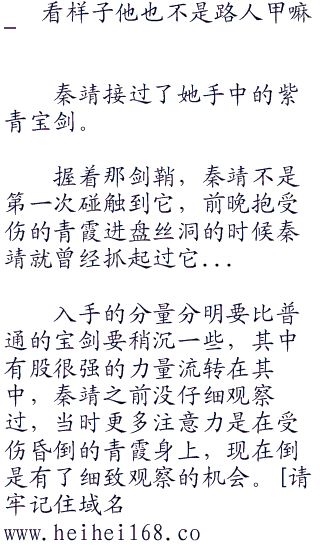 看样子他也不是路人甲嘛
_
秦靖接过了她手中的紫
青宝剑。
握着那剑鞘，秦靖不是
第一次碰触到它，前晚抱受
伤的青霞进盘丝洞的时候秦
靖就曾经抓起过它...
入手的分量分明要比普
通的宝剑要稍沉一些，其中
有股很强的力量流转在其
中，秦靖之前没仔细观察
过，当时更多注意力是在受
伤昏倒的青霞身上，现在倒
是有了细致观察的机会。[请
牢记住域名
www.heihei168.co